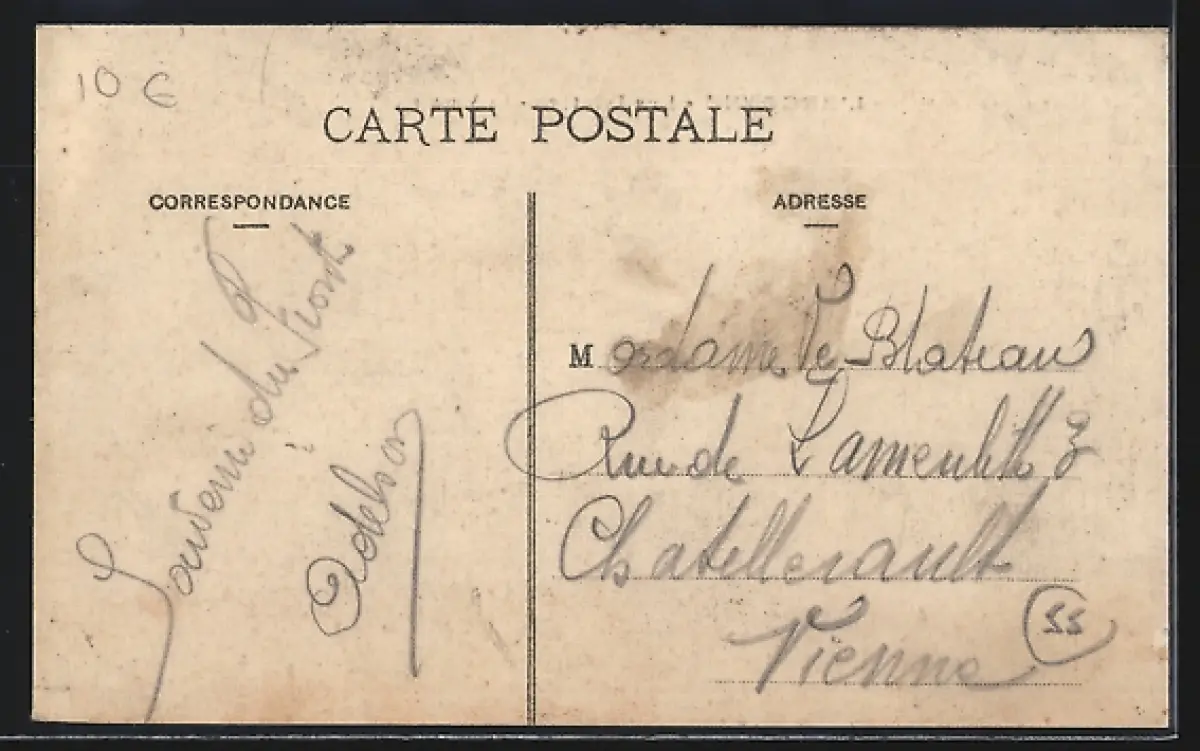 10 €
CARTE POSTALE
CORRESPONDANCE
ADRESSE
Souvenir du Front
Adelson
Madame Ve Blateau
Rue de 3
Chatellerault
Vienne
55